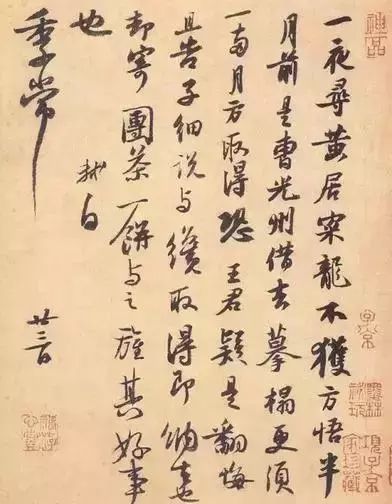 一夜尋黃居寀龍不獲方悟半
月前是曹光州借去摹榻更須
一兩月方取得恐王君疑是翻悔
且告子細說與纔取得即納去也
却寄團茶一餅與之旌其好事
也
軾白
季常
廿三日
子京
項子京家珍藏